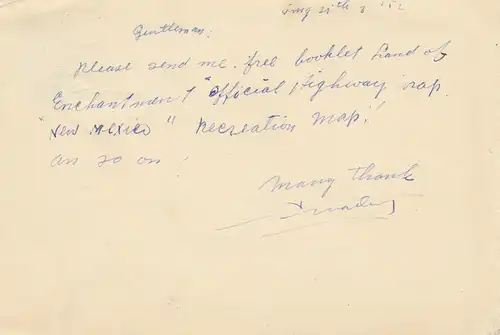 Gentleman:
Please send me free booklet Land of
Enchantment "Official Highway map
"New Mexico" Recreation Map!
an so on!
Many thank